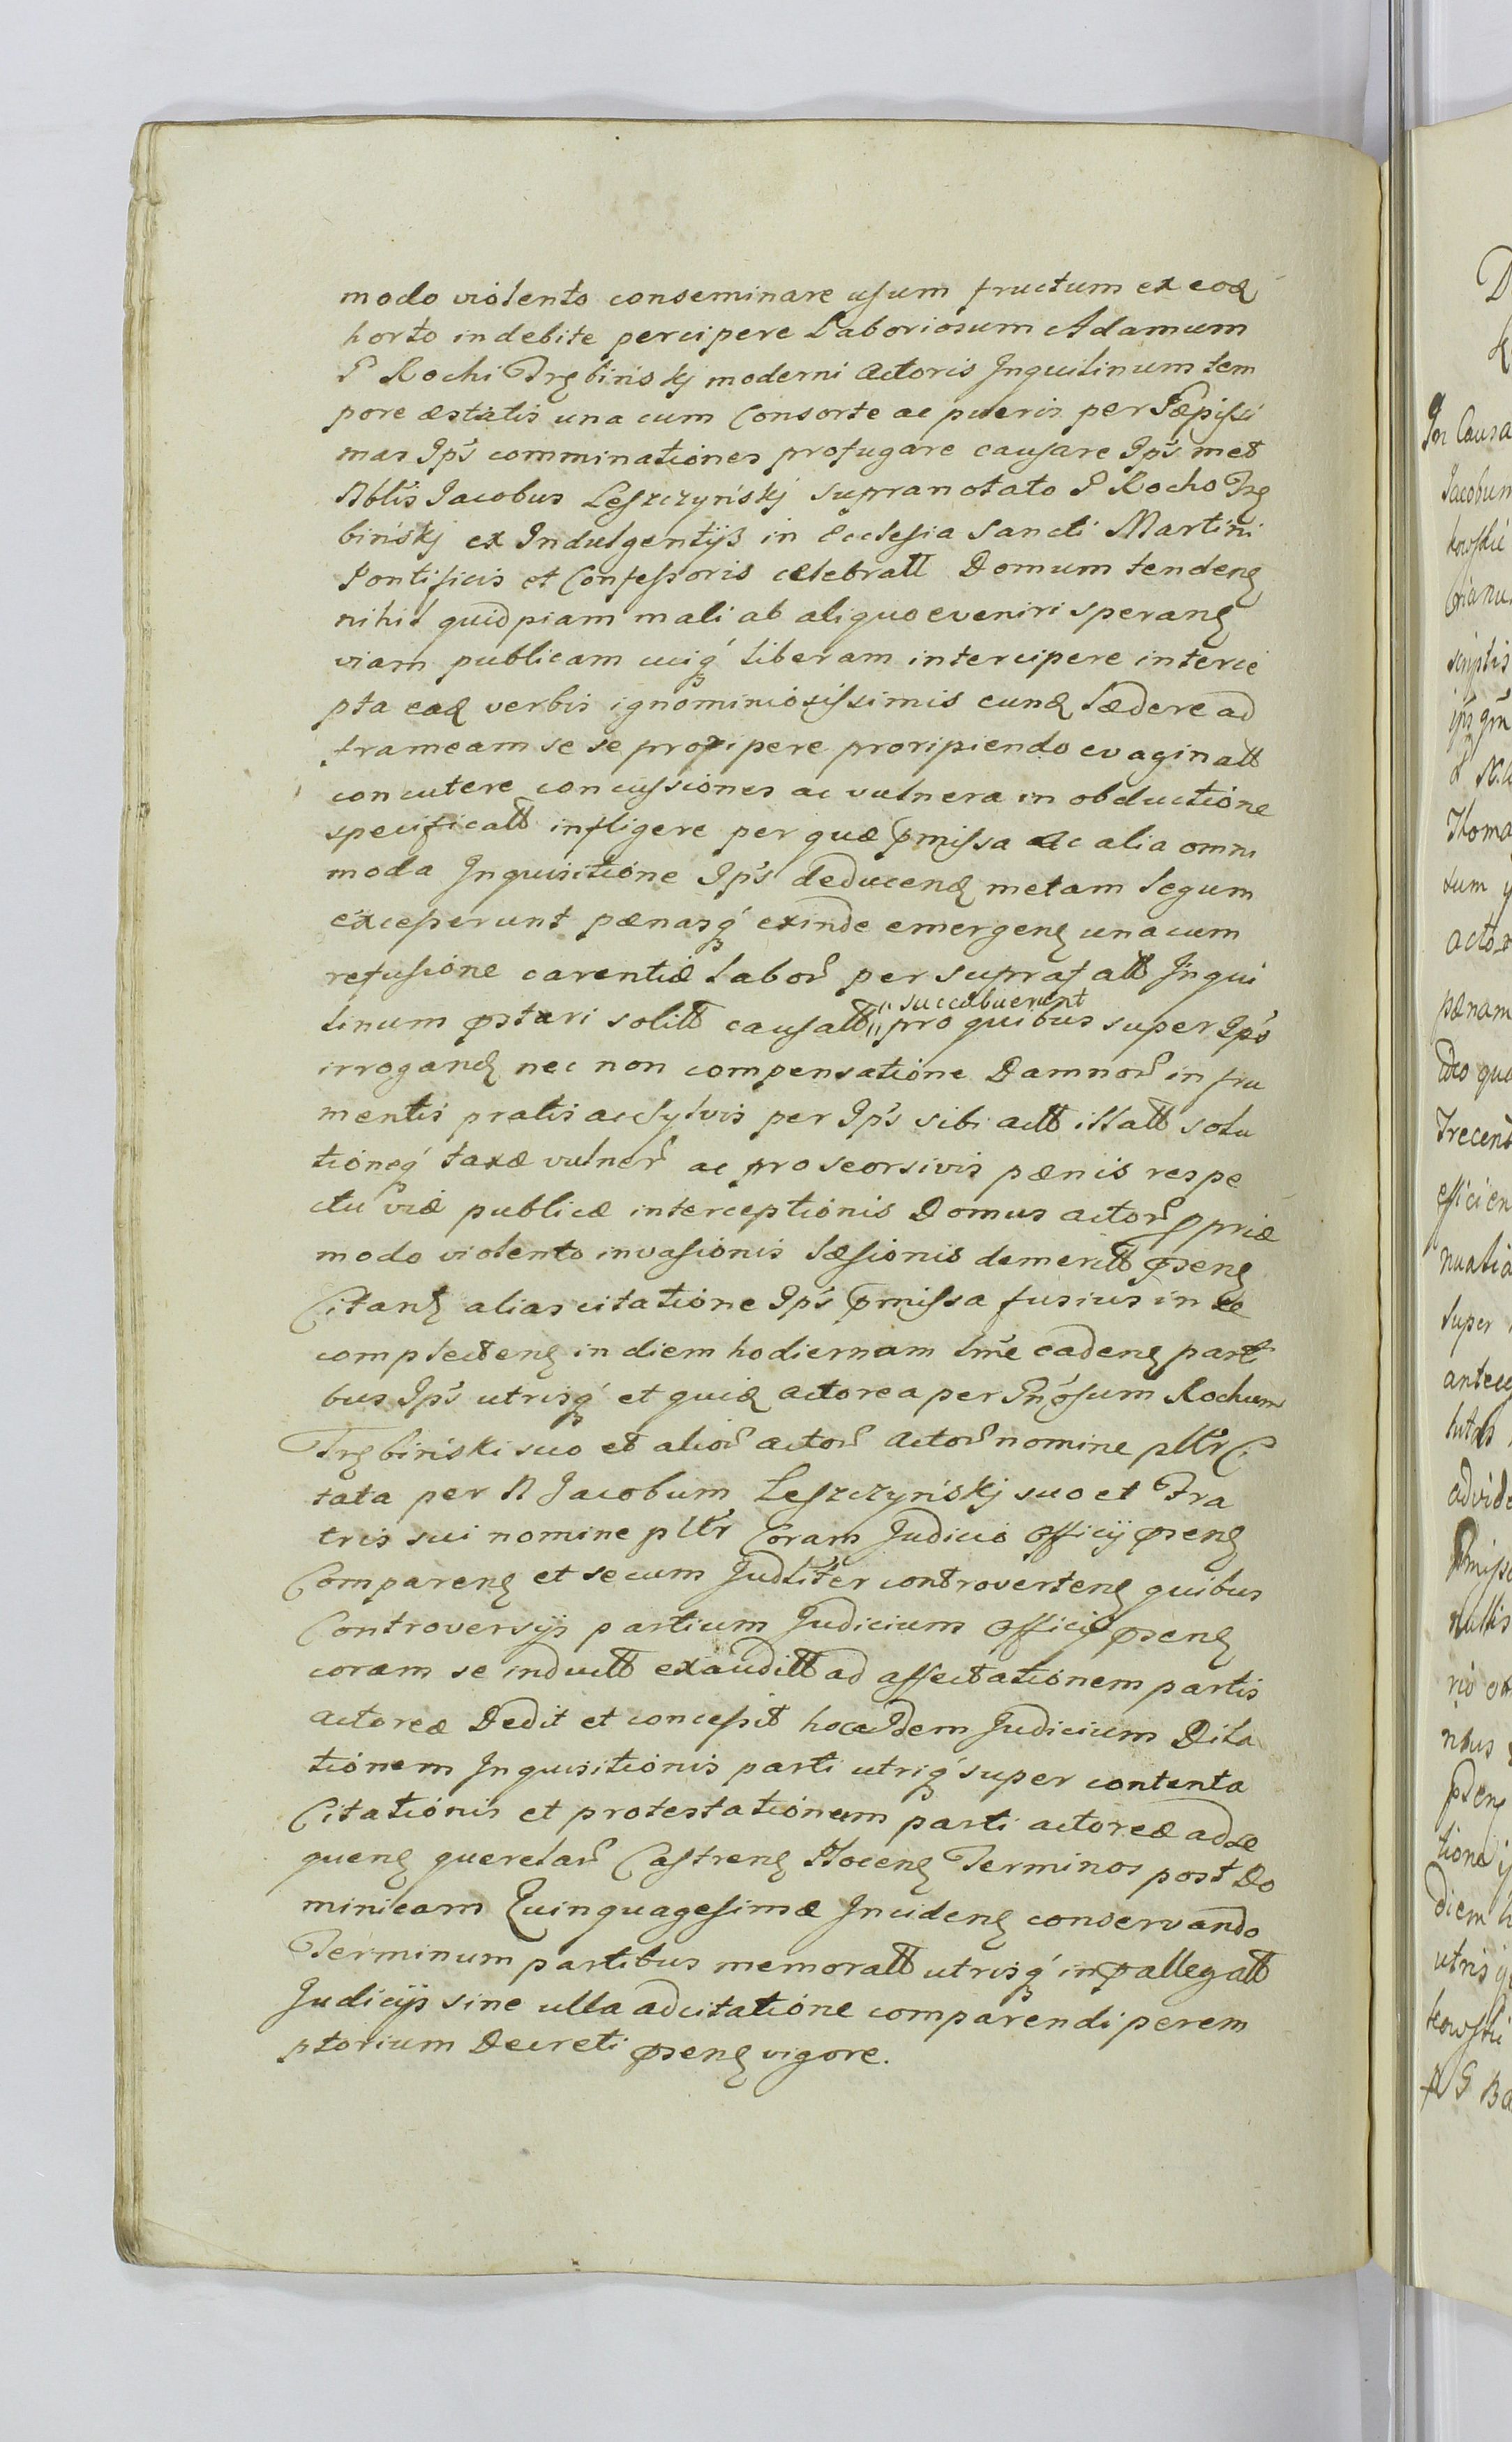 modo violento conseminare usum fructum ex eoq
horto indebite percipere Laboriosum Adamum
P Rochi Trębinskj moderni Actoris Inquilinum tem
pore æstatis una cum Consorte ac pueris per Sæpissi
mas Ips comminationes profugare causare Ips met
Nblis Jacobus Leszczyńskj supranotato P Rocho Trę
bińskj ex Indulgentijs in Ecclesia Sancti Martini
Pontificis et Confessoris celebratt Domum tendenę
nihil quidpiam mali ab aliquo eveniri speranę
viam publicam cuiq liberam intercipere interce
pta eaq verbis ignominiosissimis eunq lædere ad
frameam se se proripere proripiendo evaginatt
concutere concussiones ac vulnera in obductione
specificatt infligere per quæ pmissa ac alia omni
moda Inquisitione Ips deducenq metam legum
exceperunt pænasq exinde emergenę una cum
refusione carentiæ labor per suprafatt Inqui
linum pstari solitt causatt " succubuerunt " pro quibus super Ips
irroganę nec non compensatione Damnor in fru
mentis pratis ac Sylvis per Ips sibi actt illatt solu
tioneq taxæ vulner ac pro seorsivis pænis respe
ctu viæ publicæ interceptionis Domus actor ppriæ
modo violento invasionis læsionis demeritt psenę
Citanę alias citatione Ips pmissa fusius in se
complectenę in diem hodiernam lme cadenę parti
bus Ips utrisq et quiq actorea per Gnosum Rochum
Trębinski suo et alior actor actor nomine pltr Ci
tata per N Jacobum Leszczyńskj suo et Fra
tris sui nomine pltr Coram Judicio Officij psenę
Comparenę et secum Judliter controvertenę quibus
Controversijs partium Judicium Officij psenę
coram se inductt exauditt ad affectationem partis
actoreæ Dedit et concessit hocce Idem Judicium Dila
tionem Inquisitionis parti utriq super contenta
Citationis et protestationum parti actoreæ ad se
quenę querelar Castrenę Nocenę Terminos post Do
minicam Quinquagesimæ Incidenę conservando
Terminum partibus memoratt utrisq in pallegatt
Judicijs sine ulla adcitatione comparendi perem
ptorium Decreti psenę vigore.
In Causa
Jacobum
kowskie
scriptis
Thoma
sum
acto
pænam
Trecent
efficien
nuatio
super
advide
nullis
psenę
tione
diem h